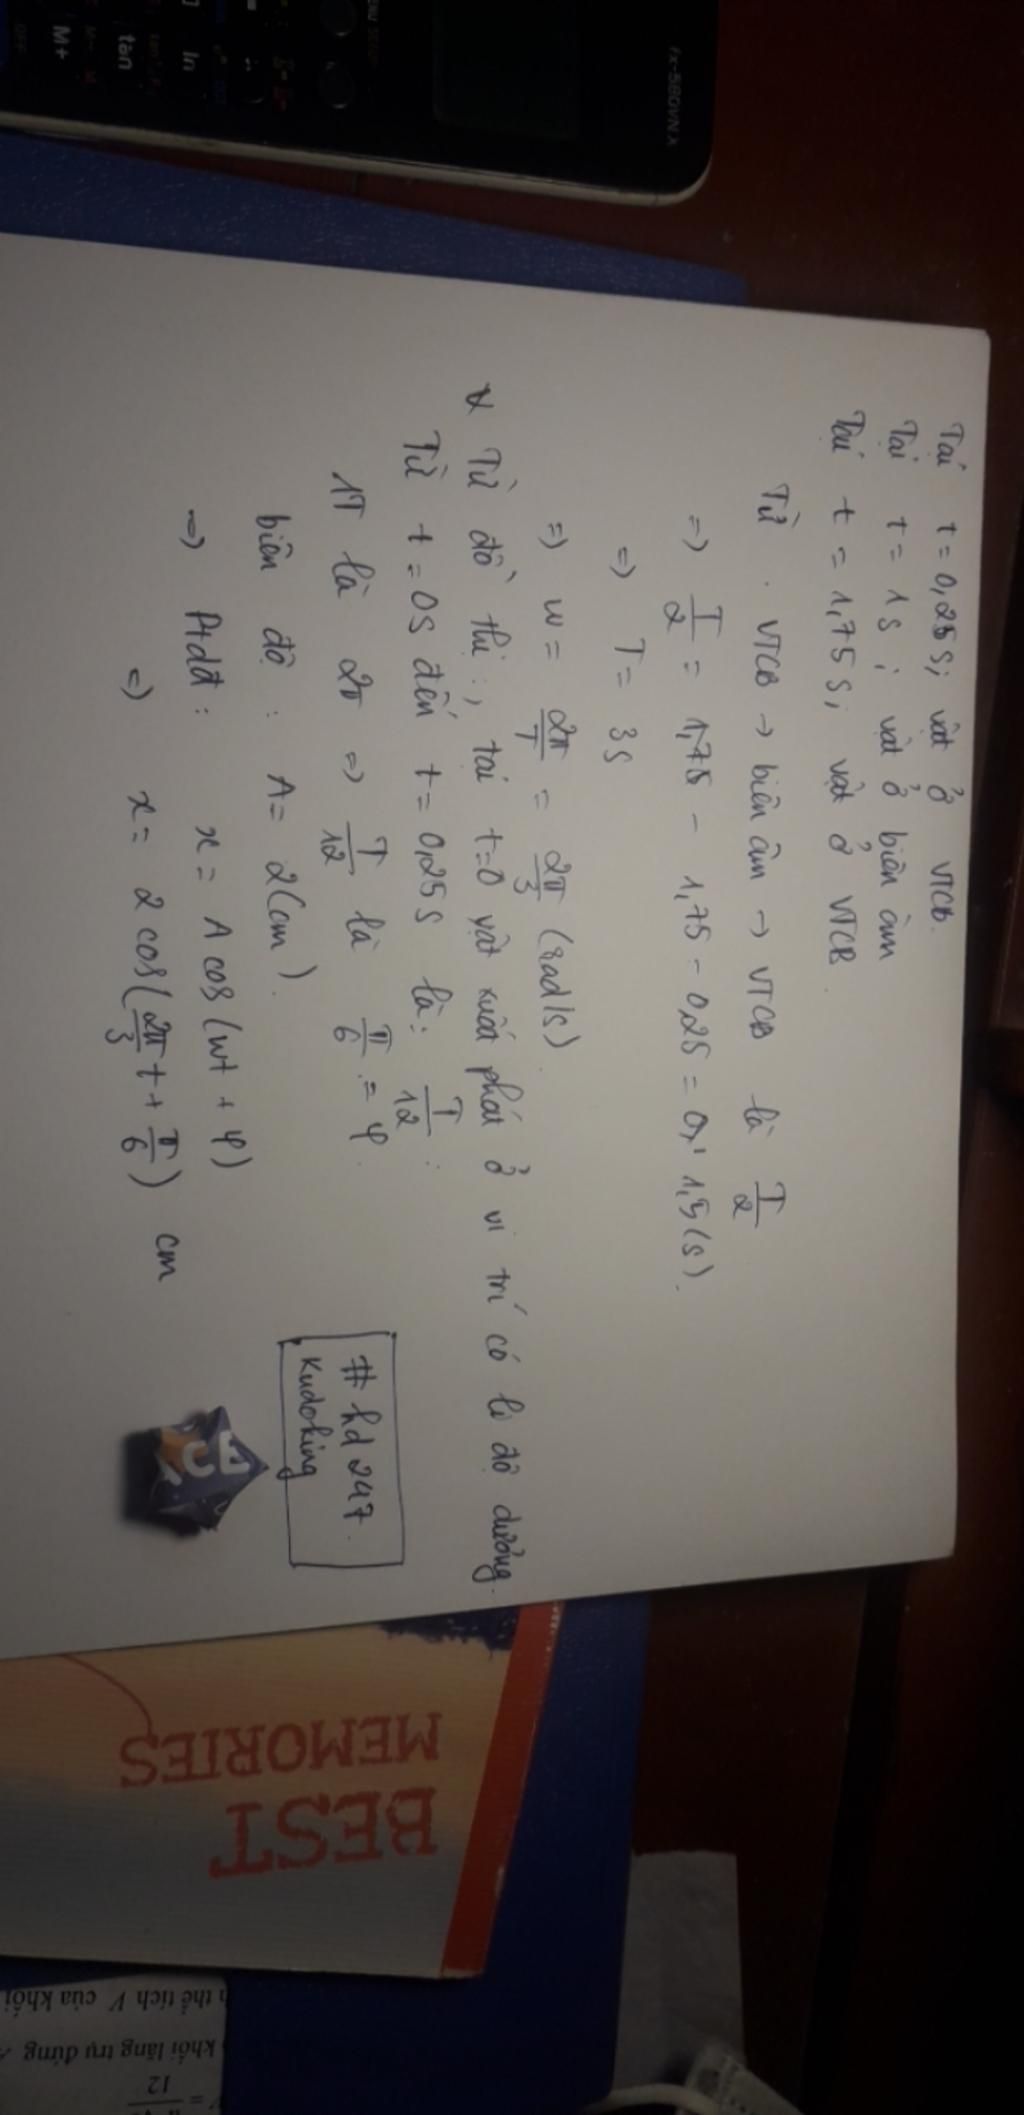 Tại t = 0,25 s; vật ở VTCB.
Tại t = 1 s; vật ở biên âm
Tại t = 1,75 s; vật ở VTCB.
Từ VTCB → biên âm → VTCB là T/2
=) T/2 = 1,75 - 1,75 - 0,25 = 0,1 1,5(s).
=) T = 3s
=) w = 2π/T = 2π/3 (rad/s)
* Từ đồ thị:, tại t=0 vật xuất phát ở vị trí có li độ dương.
Từ t = 0s đến t = 0,25s là: T/12.
1T là 2π =) T/12 là π/6 = φ.
biên độ: A = 2(cm).
=) Ptdđ: x = A cos (wt + φ)
=) x = 2 cos(2π/3 t + π/6) cm
# hd 247.
Kudoking
fx-580VN X
MENU
M+
tan
ln
OFF
BEST
MEMORIES
thể tích V của khối
khối lăng trụ đứng
12